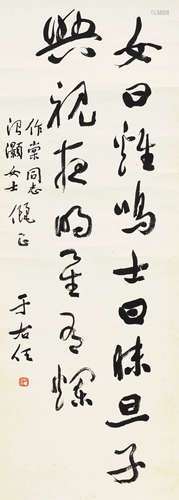 女曰雞鳴士曰昧旦子
興視夜明星有爛
作棠同志
灝女士 儷正
于右任